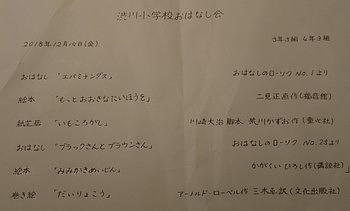 渋川小学校おはなし会
2018年12月14日(金) 3年3組 4年3組
おはなし 「エパミナンダス」 おはなしのローソク No.1より
絵本 「もっとおおきなたいほうを」 二見正直作(福音館)
紙芝居 「いもころがし」 川崎大治 脚本 前川かずお 作(童心社)
おはなし 「ブラックさんとブラウンさん」 おはなしのローソク No.28より
絵本 「みみかきめいじん」 かがくい ひろし作(講談社)
巻き絵 「だいりょこう」 アーノルド・ローベル作 三木卓訳(文化出版社)